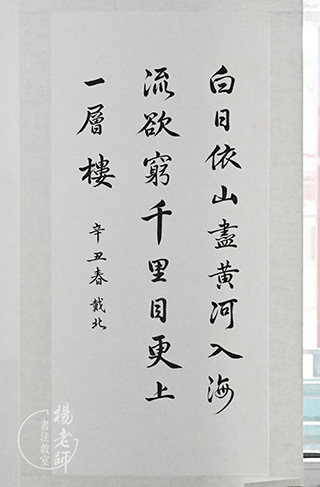 白日依山盡黄河入海
流欲窮千里目更上
一層樓
辛丑春戴北
楊老師
書法教室